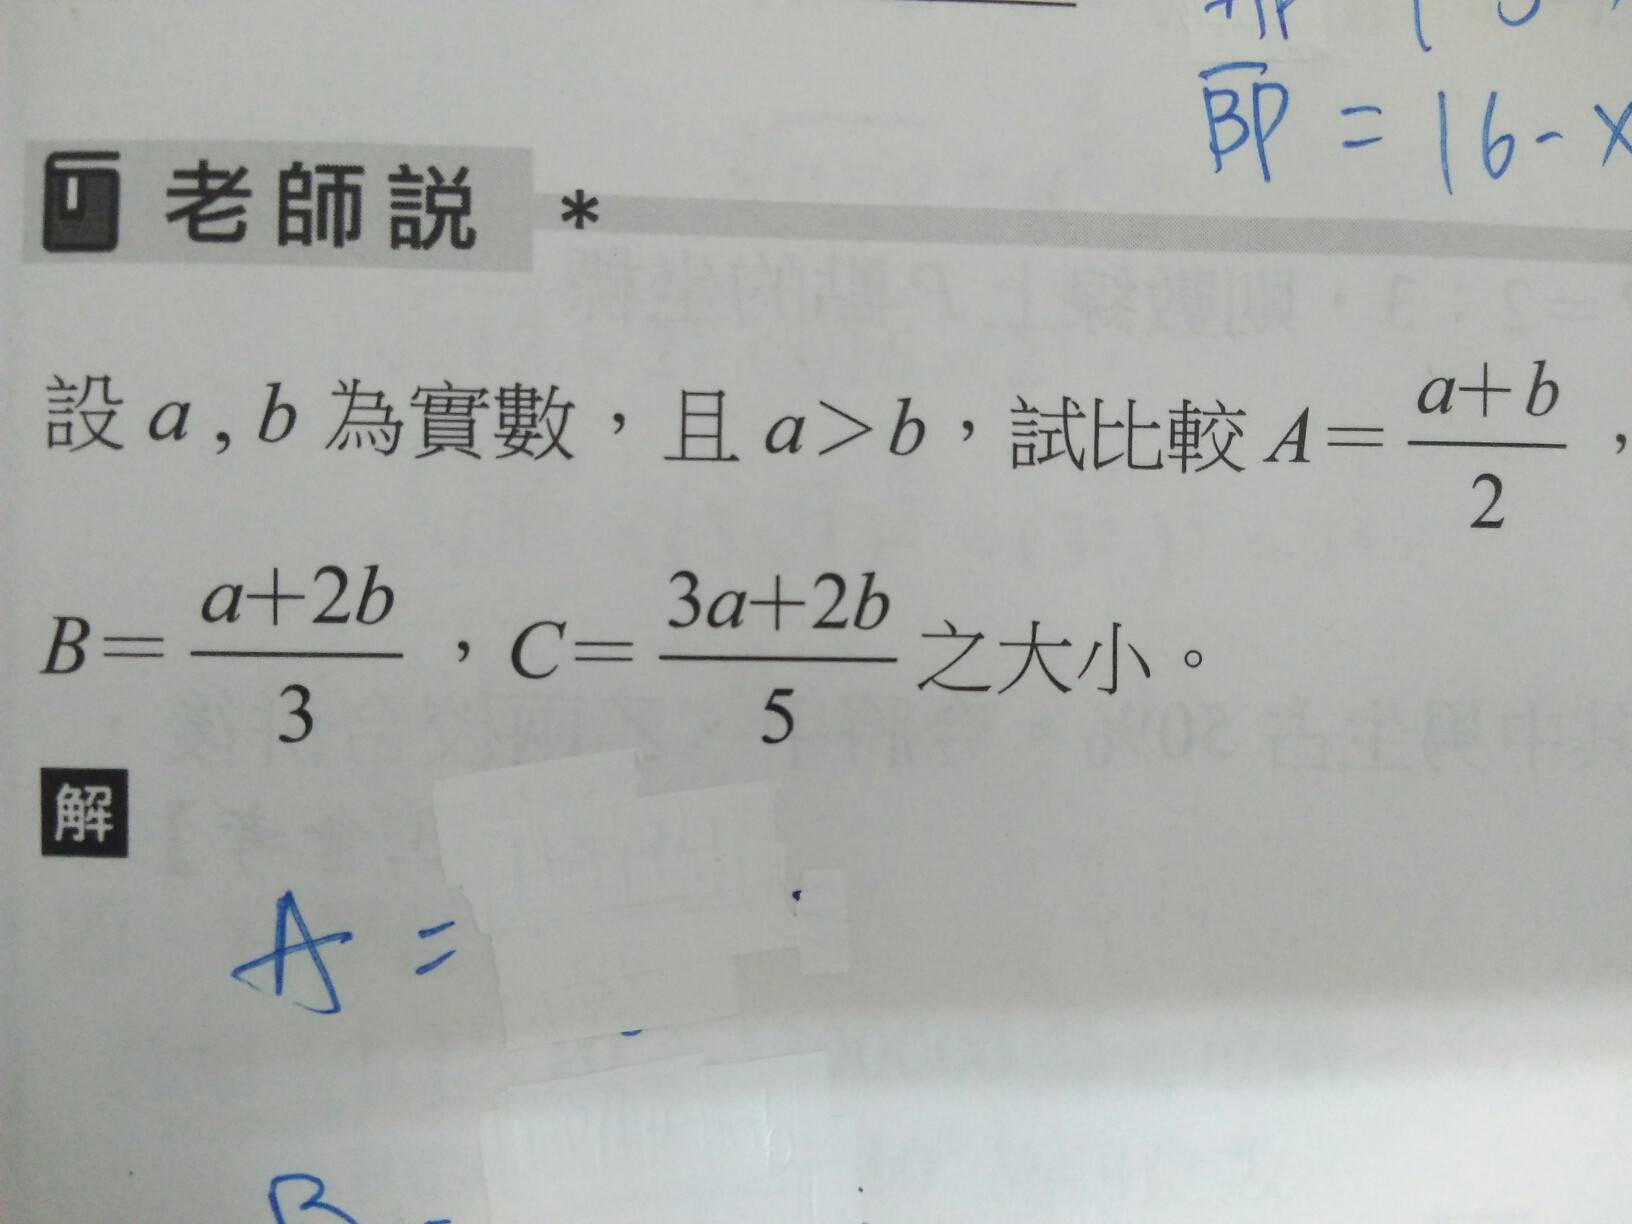 BP = 16 - x
老師説 *
設 a , b 為實數，且 a>b，試比較 A= \frac{a+b}{2} ，
B= \frac{a+2b}{3} ，C= \frac{3a+2b}{5} 之大小。
解
A =
B